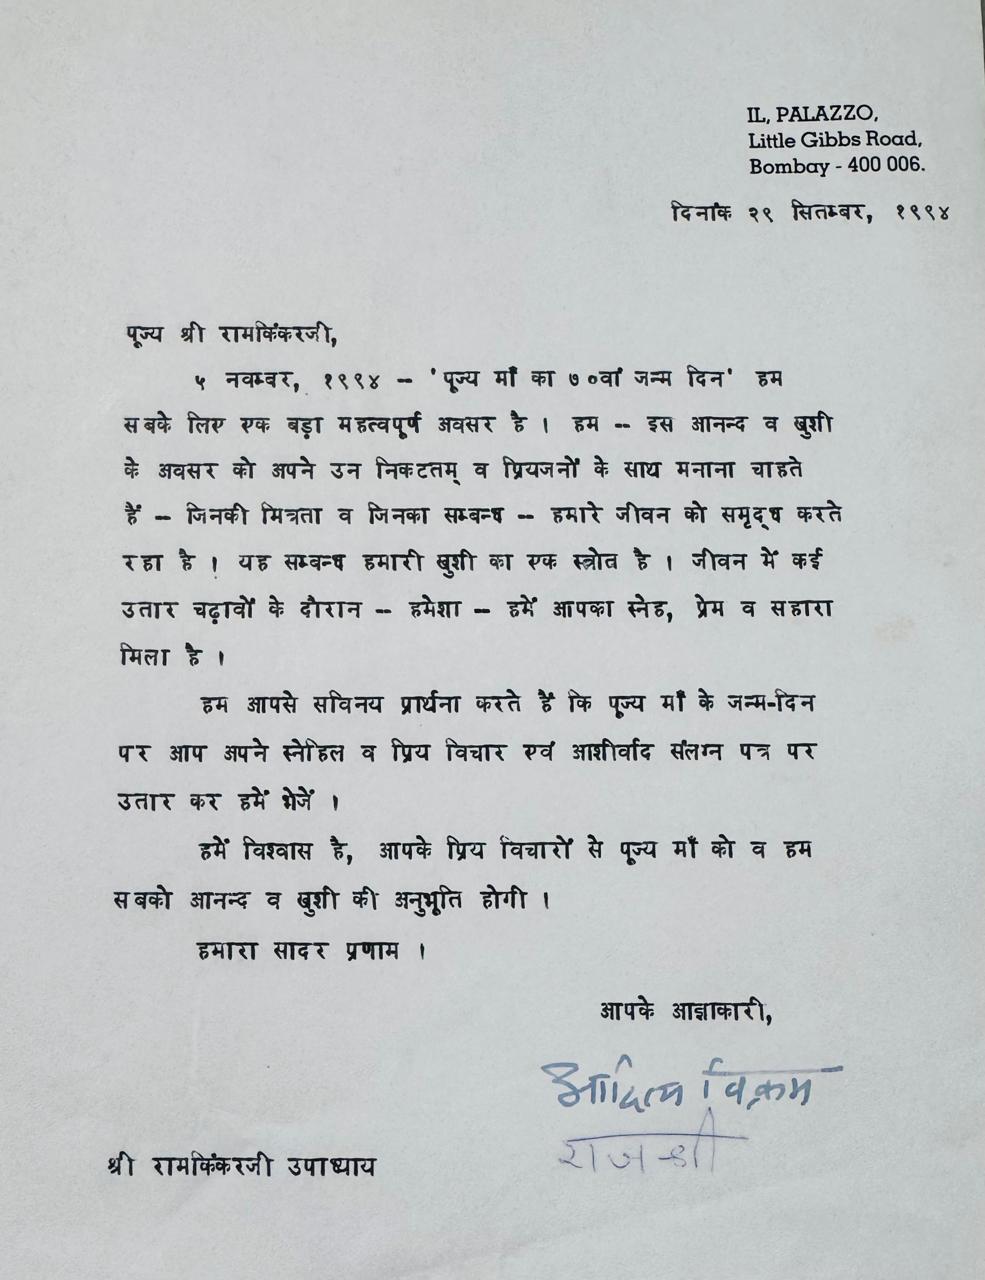 IL, PALAZZO,
Little Gibbs Road,
Bombay - 400 006.
दिनांक २९ सितम्बर, १९९४
पूज्य श्री रामकिंकरजी,
५ नवम्बर, १९९४ – 'पूज्य माँ का ७०वां जन्म दिन' हम
सबके लिए एक बड़ा महत्वपूर्ण अवसर है । हम – इस आनन्द व खुशी
के अवसर को अपने उन निकटतम् व प्रियजनों के साथ मनाना चाहते
हैं – जिनकी मित्रता व जिनका सम्बन्ध – हमारे जीवन को समृद्ध करते
रहा है । यह सम्बन्ध हमारी खुशी का एक स्त्रोत है । जीवन में कई
उतार चढ़ावों के दौरान – हमेशा – हमें आपका स्नेह, प्रेम व सहारा
मिला है ।
हम आपसे सविनय प्रार्थना करते हैं कि पूज्य माँ के जन्म-दिन
पर आप अपने स्नेहिल व प्रिय विचार एवं आशीर्वाद संलग्न पत्र पर
उतार कर हमें भेजें ।
हमें विश्वास है, आपके प्रिय विचारों से पूज्य माँ को व हम
सबको आनन्द व खुशी की अनुभूति होगी ।
हमारा सादर प्रणाम ।
आपके आज्ञाकारी,
आदित्य विक्रम
राजश्री
श्री रामकिंकरजी उपाध्याय